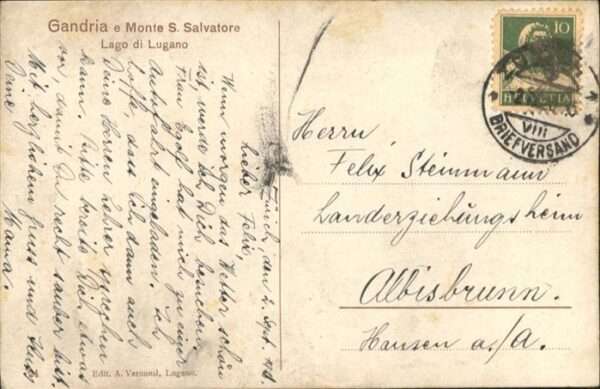 Gandria e Monte S. Salvatore
Lago di Lugano
Zürich, den 2. Sept.
Lieber Felix,
Wenn morgen das Wetter schön
ist, werde ich Dich besuchen.
Frau Graf hat mich zu einer
Autofahrt eingeladen. Ich
hoffe, dass ich dann auch
Deine Herren Lehrer sprechen
kann. Also bereits Dich etwas
vor, damit Du recht sauber bist.
Mit herzlichem Gruss und Kuss
Deine
Mama.
10
HELVETIA
VIII
BRIEFVERSAND
Herrn
Felix Steinmann
Landerziehungsheim
Albisbrunn.
Hausen a/A.
Edit. A. Vermaul, Lugano.